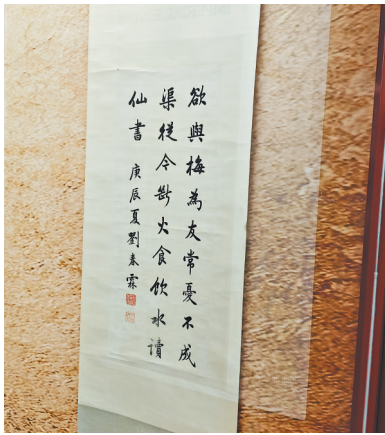 欲與梅為友常憂不成
渠從今斷火食飲水讀
仙書
庚辰夏劉春霖